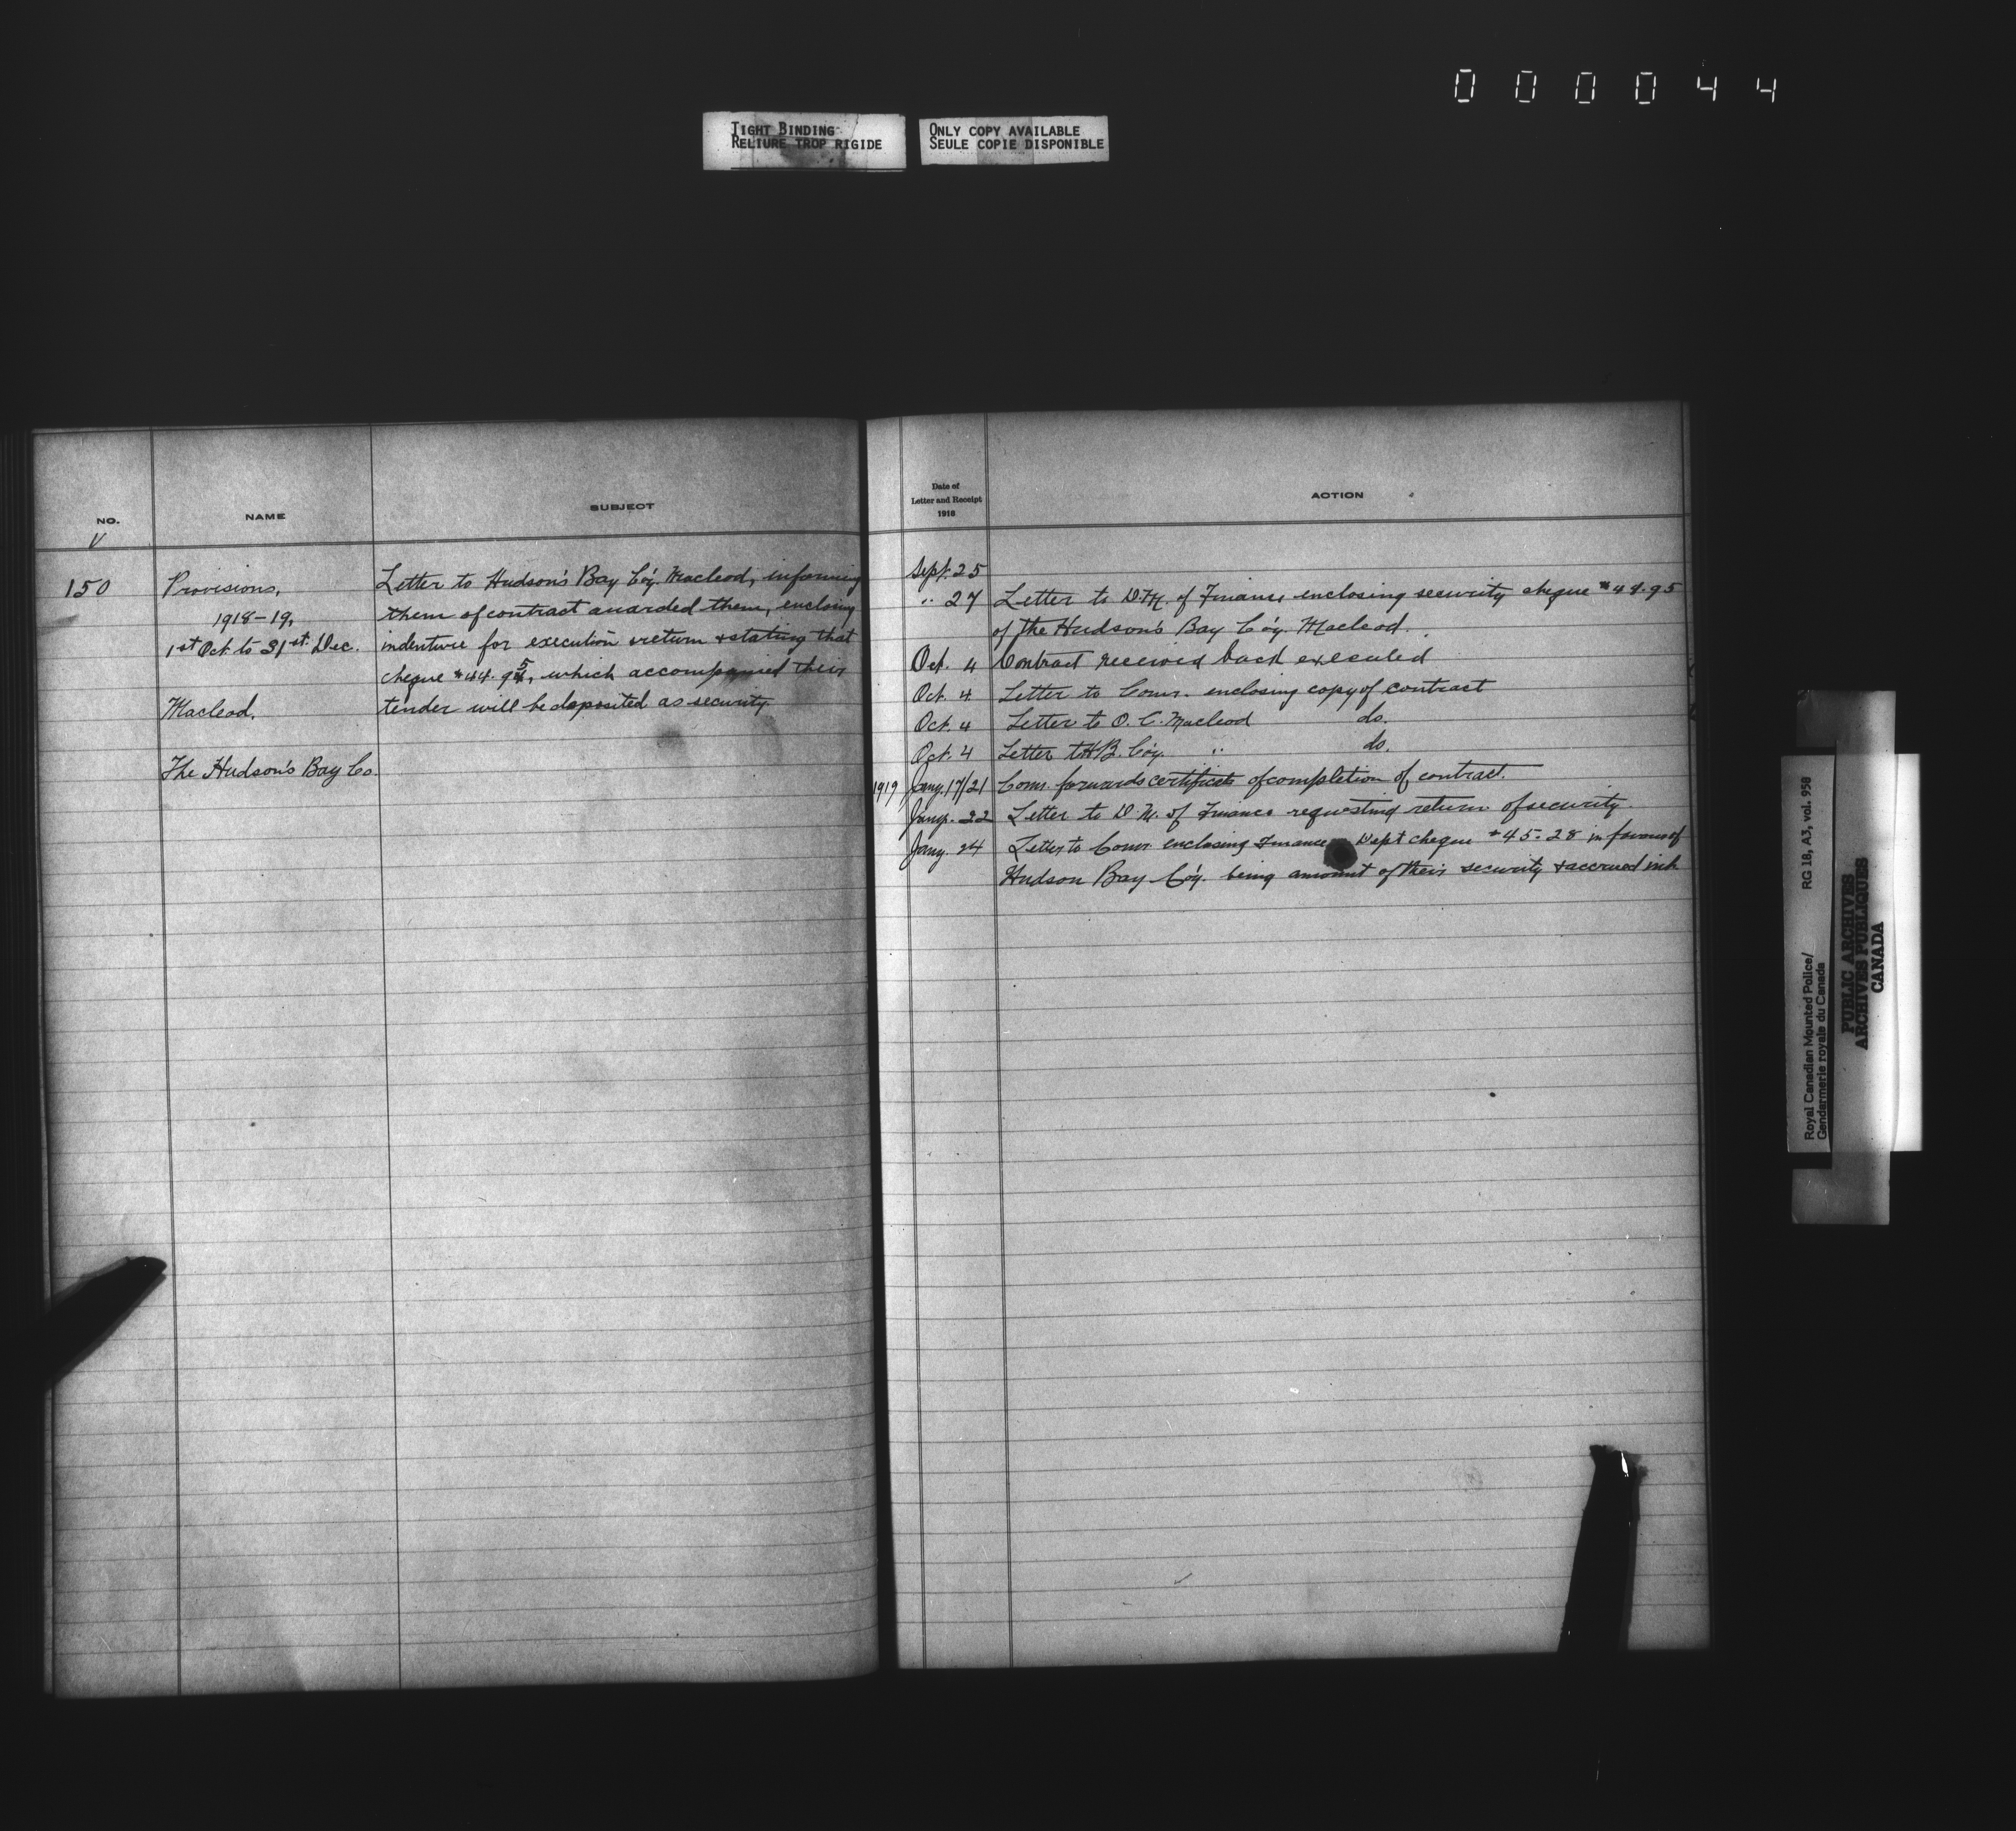 000044
TIGHT BINDING
RELIURE TROP RIGIDE
ONLY COPY AVAILABLE
SEULE COPIE DISPONIBLE
NO.
NAME
SUBJECT
V
150
Provisions,
1918-19,
1st Oct. to 31st. Dec.
Macleod.
The Hudson's Bay Co.
Letter to Hudson's Bay Co'y. Macleod, informing
them of contract awarded them, enclosing
indenture for execution & return & stating that
cheque $44.95, which accompanied their
tender will be deposited as security.
Date of
Letter and Receipt
1918
ACTION
Sept. 25
" 27 Letter to D. M. of Finance enclosing security cheque $44.95
of the Hudson's Bay Co'y. Macleod.
Oct. 4 Contract received back executed
Oct. 4 Letter to Comr. enclosing copy of contract
Oct. 4 Letter to O. C. Macleod do.
Oct. 4 Letter to H B. Co'y. " do.
1919 Jany. 17/21 Comr. forwards certificate of completion of contract.
Jany. 22 Letter to D. M. of Finance requesting return of security.
Jany. 24 Letter to Comr. enclosing Finance Dept cheque $45.28 in favour of
Hudson Bay Co'y. being amount of their security & accrued int.
Royal Canadian Mounted Police/
Gendarmerie royale du Canada
RG 18, A3, vol. 958
PUBLIC ARCHIVES
ARCHIVES PUBLIQUES
CANADA